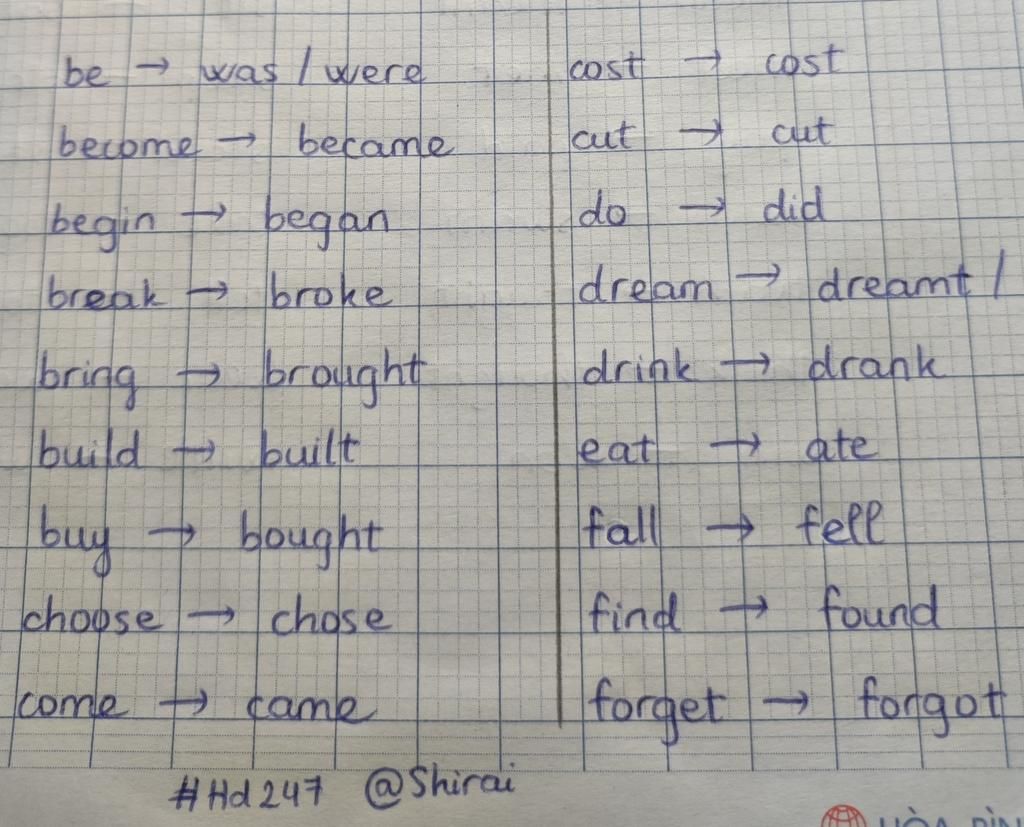 be → was / were
become → became
begin → began
break → broke
bring → brought
build → built
buy → bought
choose → chose
come → came
cost → cost
cut → cut
do → did
dream → dreamt /
drink → drank
eat → ate
fall → fell
find → found
forget → forgot
#Hd247 @Shirai